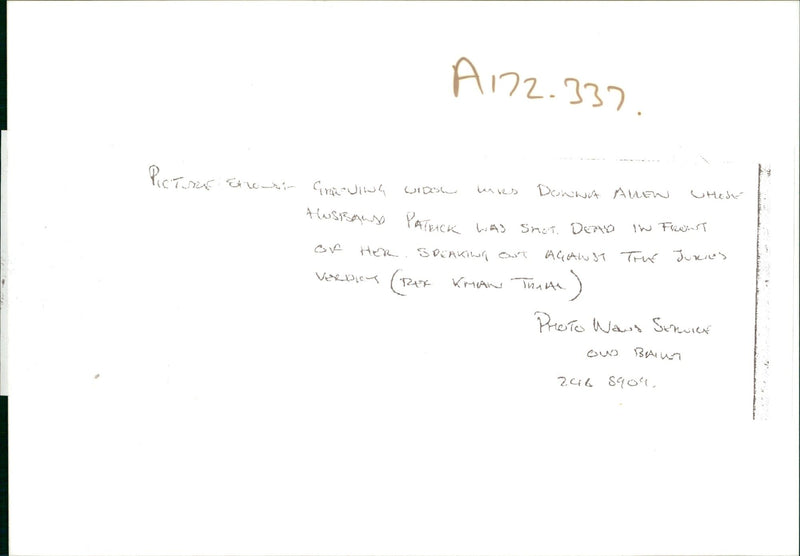 A172.337.
PICTURE SHOWS:- GRIEVING WIDOW MRS DONNA ALLEN WHOSE
HUSBAND PATRICK WAS SHOT DEAD IN FRONT
OF HER. SPEAKING OUT AGAINST THE JURIES
VERDICT ( KHAN TRIAL)
PHOTO NEWS SERVICE
OLD BAILEY
248